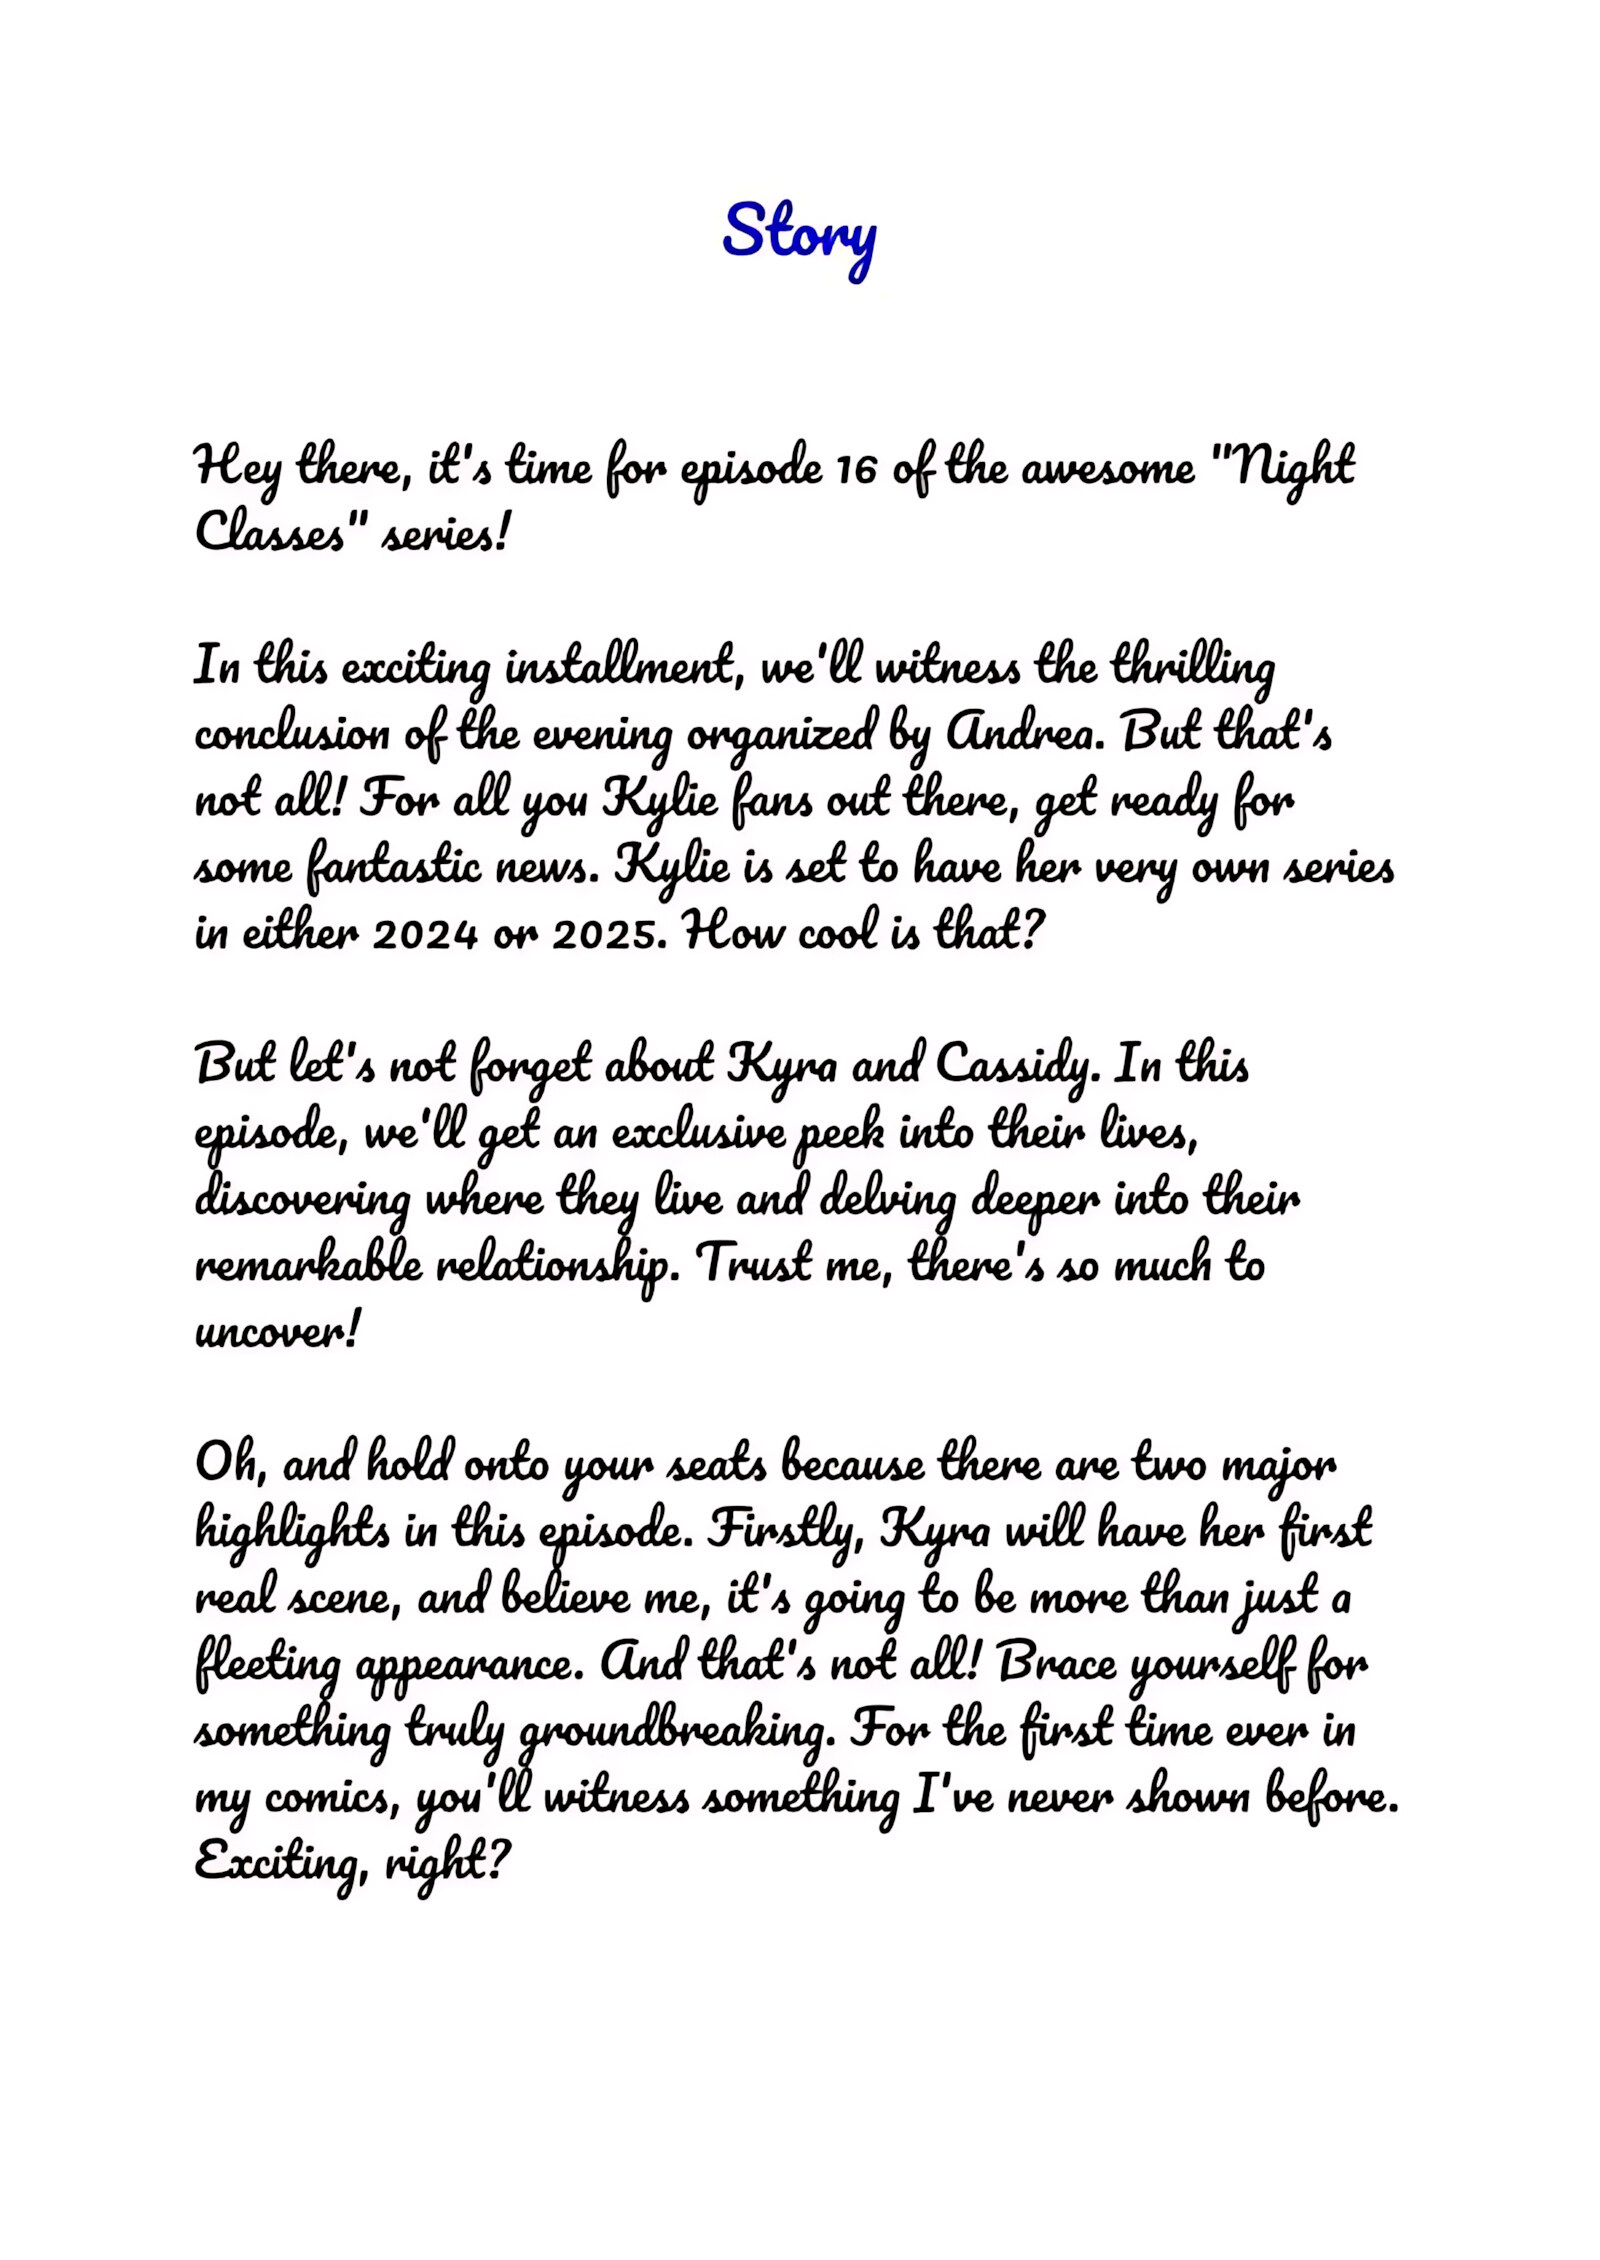 Story
Hey there, it's time for episode 16 of the awesome "Night
Classes" series!
In this exciting installment, we'll witness the thrilling
conclusion of the evening organized by Andrea. But that's
not all! For all you Kylie fans out there, get ready for
some fantastic news. Kylie is set to have her very own series
in either 2024 or 2025. How cool is that?
But let's not forget about Kyra and Cassidy. In this
episode, we'll get an exclusive peek into their lives,
discovering where they live and delving deeper into their
remarkable relationship. Trust me, there's so much to
uncover!
Oh, and hold onto your seats because there are two major
highlights in this episode. Firstly, Kyra will have her first
real scene, and believe me, it's going to be more than just a
fleeting appearance. And that's not all! Brace yourself for
something truly groundbreaking. For the first time ever in
my comics, you'll witness something I've never shown before.
Exciting, right?